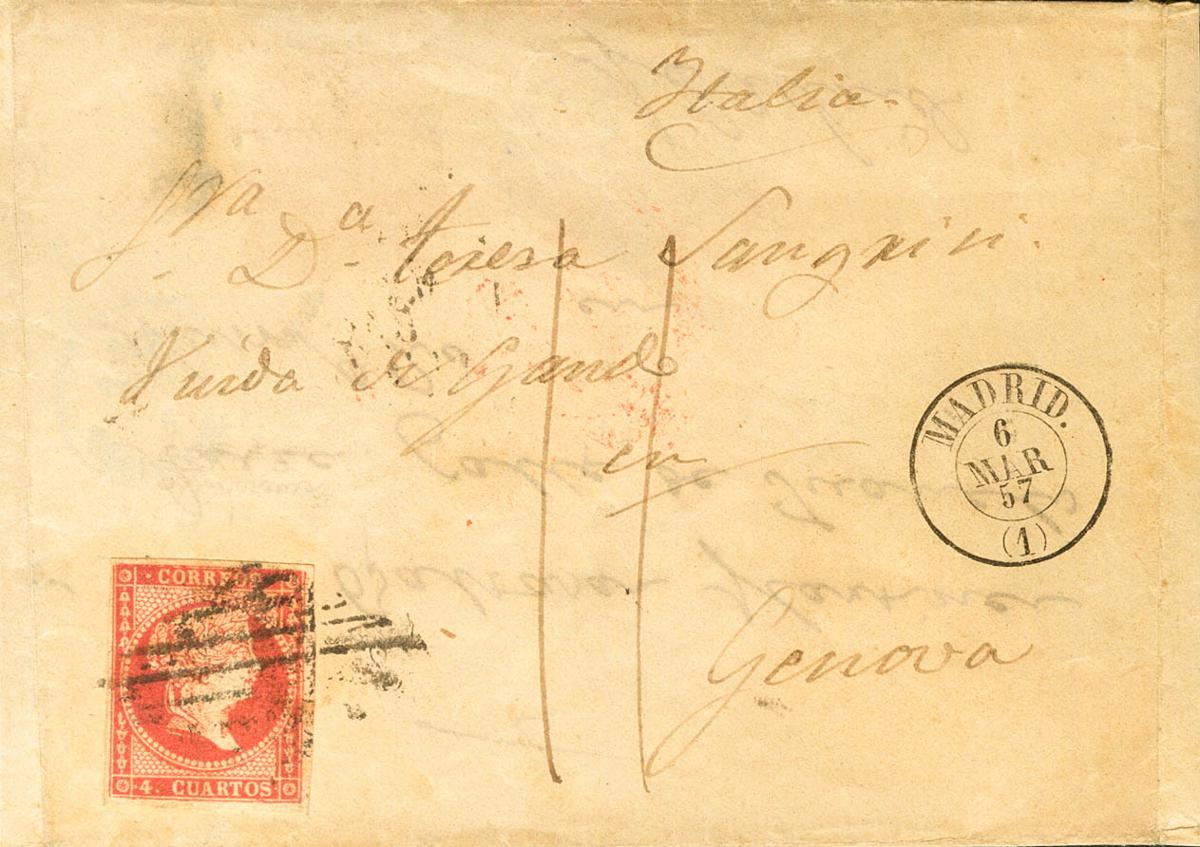 Italia.
Sra. Da. Teresa Sangxini.
Viuda de Gand
en
Genova
MADRID.
6
MAR
57
(1)
CORREOS
4. CUARTOS